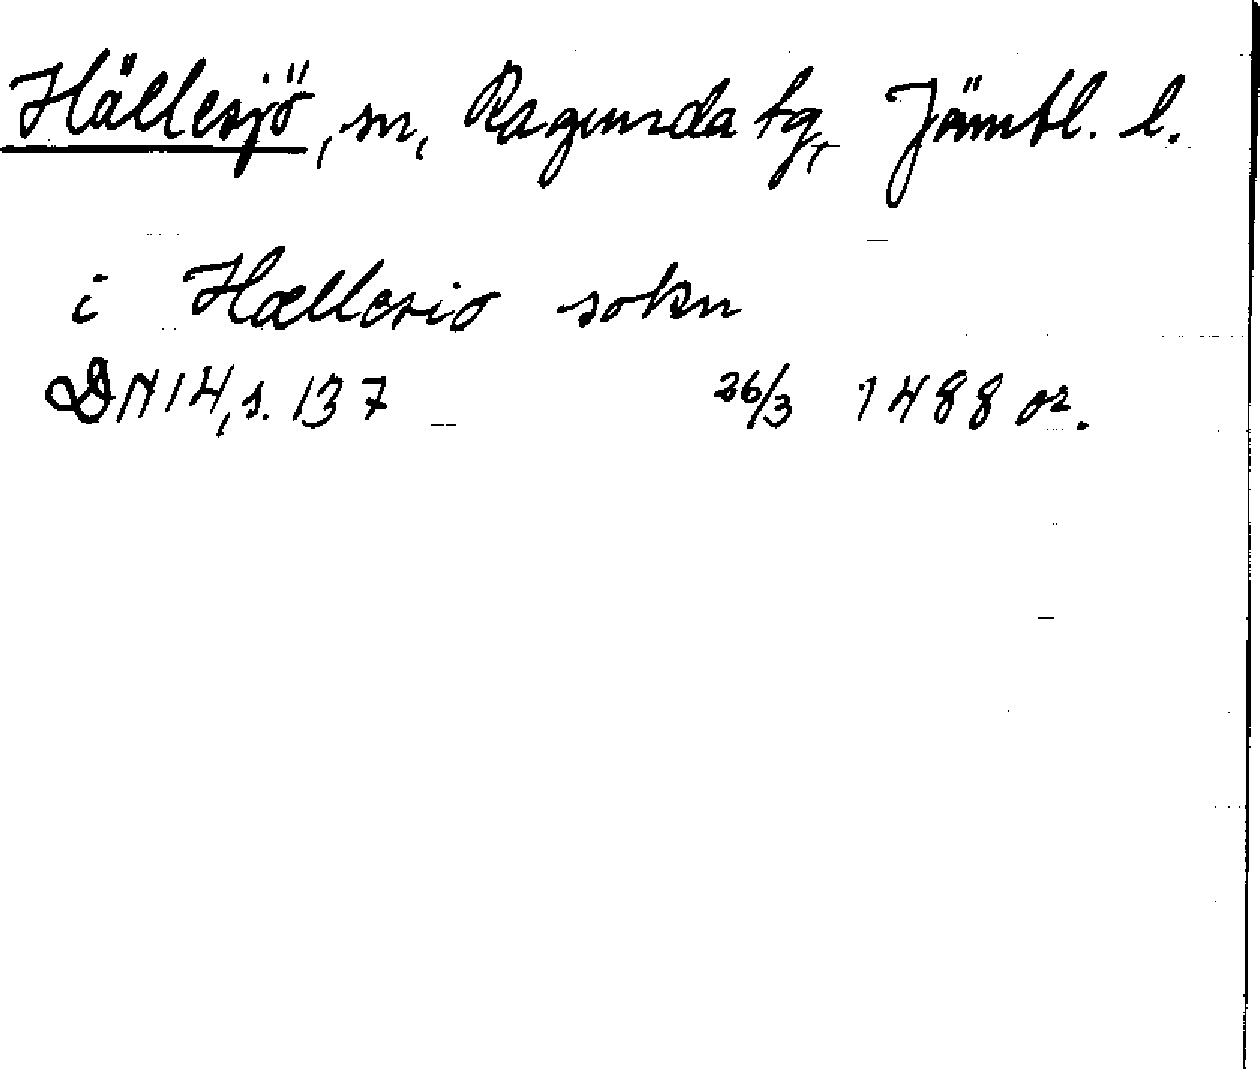 Hällesjö, sn, Ragunda tg, Jämtl. l.
i Hællesio sokn
DN 14, s. 137 26/3 1488 or.